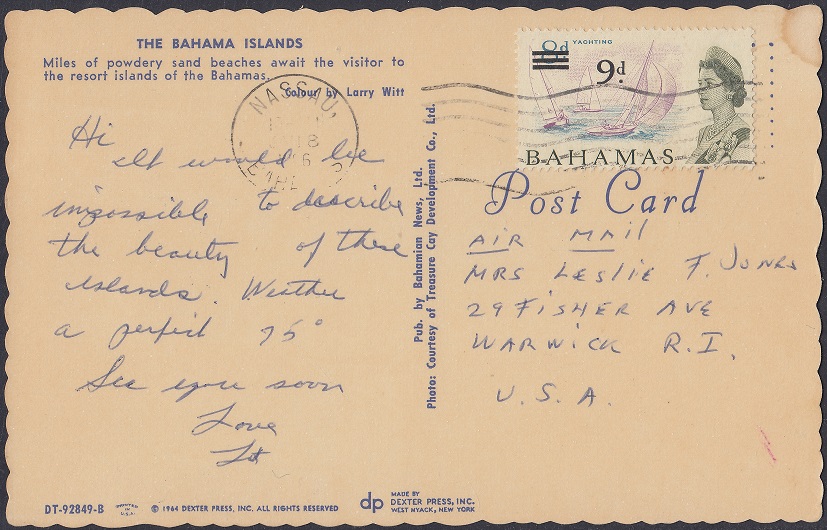 THE BAHAMA ISLANDS
Miles of powdery sand beaches await the visitor to
the resort islands of the Bahamas.
Colour by Larry Witt
NASSAU
18
Hi
It would be
impossible to describe
the beauty of these
islands. Weather
a perfect 75°
See you soon
Love
Pub. by Bahamian News, Ltd.
Photo: Courtesy of Treasure Cay Development Co., Ltd.
8d YACHTING
9d.
BAHAMAS
Post Card
AIR MAIL
MRS LESLIE F. JONES
29 FISHER AVE
WARWICK R.I.
U.S.A.
DT-92849-B
PRINTED IN U.S.A.
© 1964 DEXTER PRESS, INC. ALL RIGHTS RESERVED
dp
MADE BY
DEXTER PRESS, INC.
WEST NYACK, NEW YORK